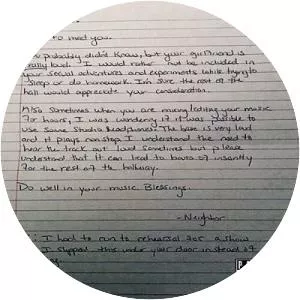 to meet you.
probably didn't know, but your girlfriend is
really loud. I would rather not be included in
your sexual adventures and experiments while trying to
sleep or do homework. I'm sure the rest of the
hall would appreciate your consideration.
Also sometimes when you are mixing/editing your music
for hours, I was wondering if it was possible to
use some studio headphones? The base is very loud
and it plays nonstop. I understand the need to
hear the track out loud sometimes but please
understand that it can lead to bouts of insanity
for the rest of the hallway.
Do well in your music. Blessings.
-Neighbor
: I had to run to rehearsal for a show
I slipped this under your door instead of